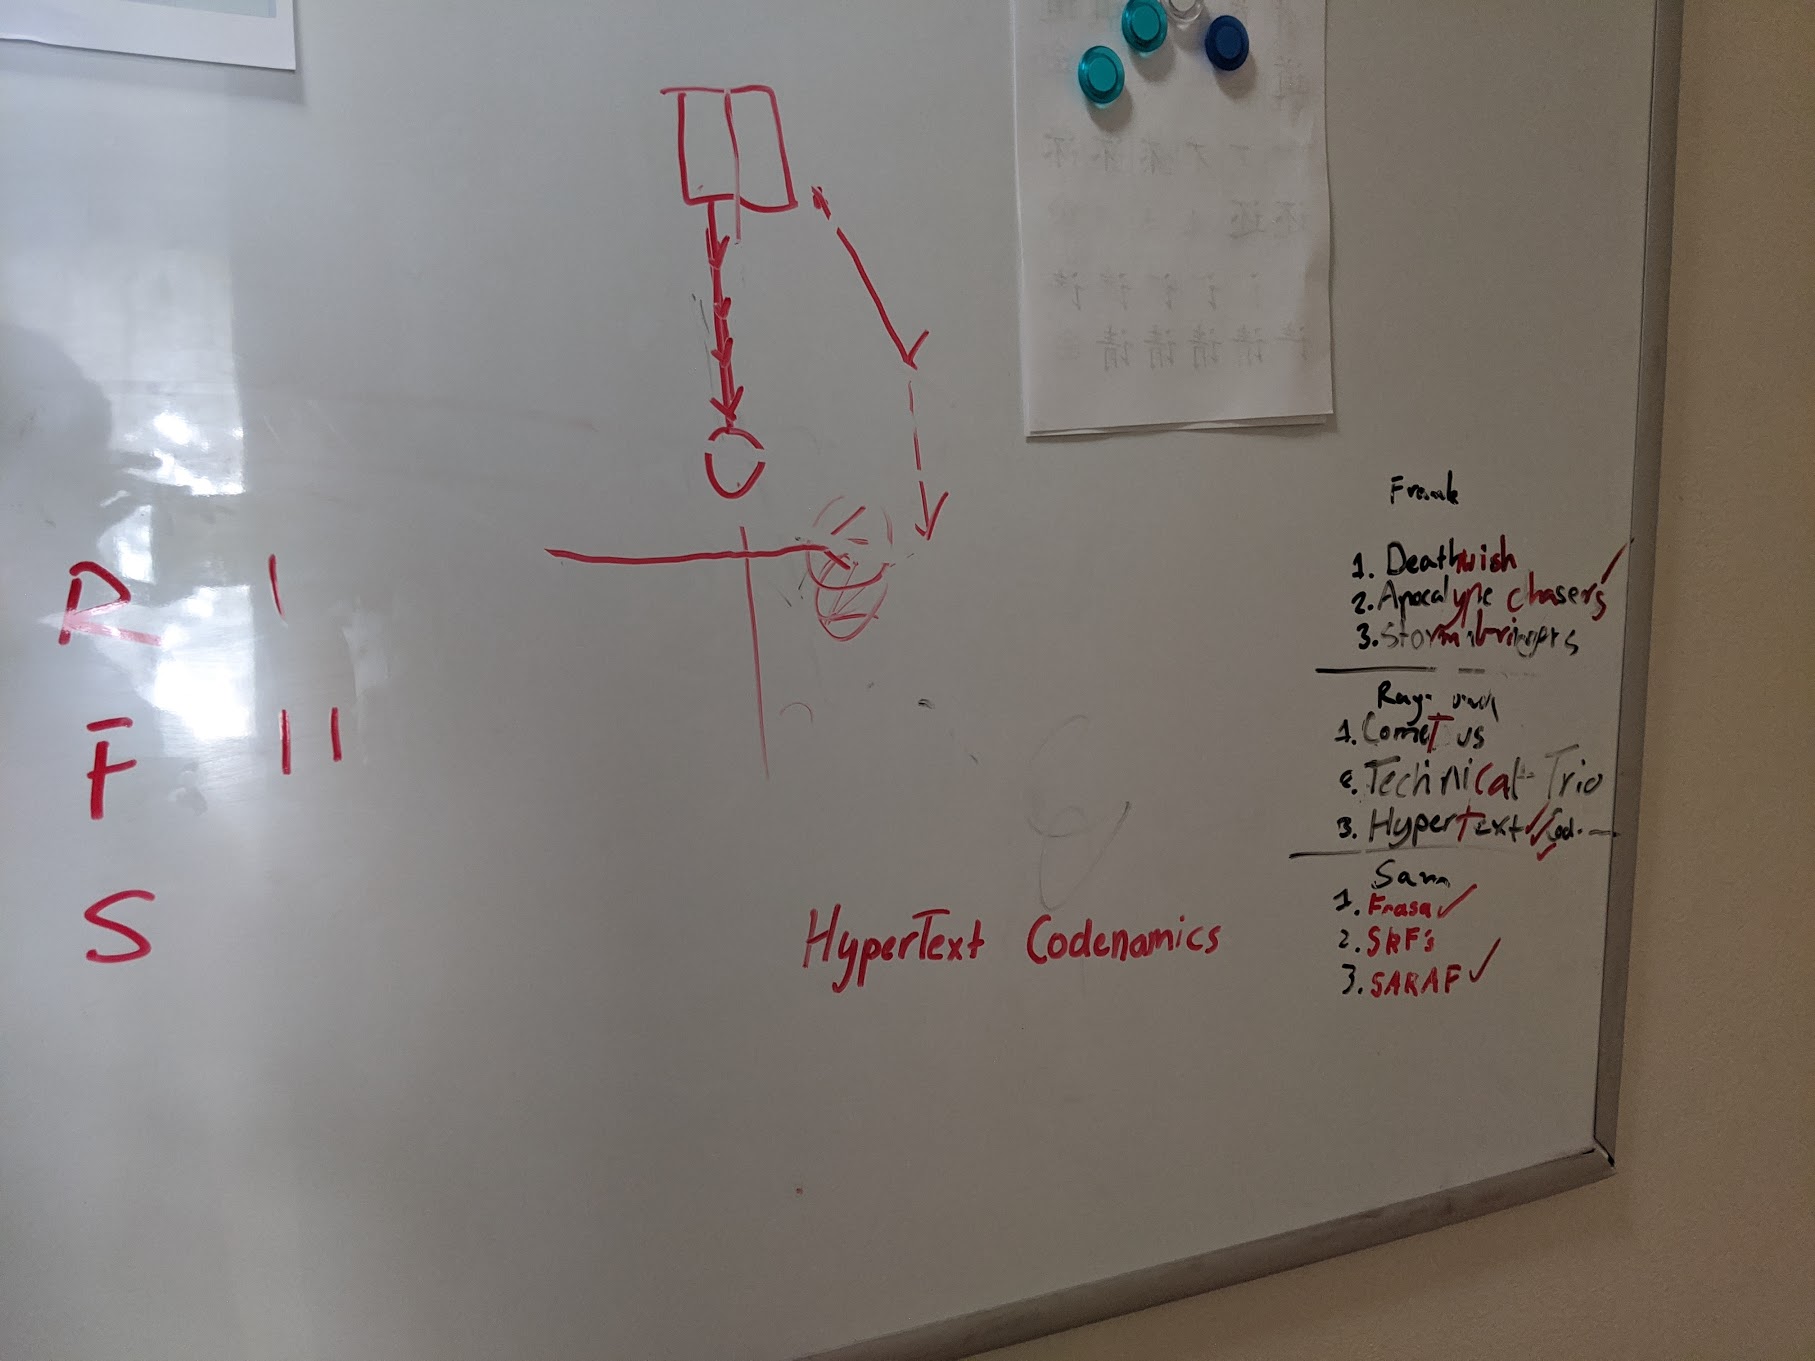 R I
F II
S
HyperText Codenamics
Frank
1. Deathwish
2. Apocalypse chasers ✓
3. Stormbringers
1. ComeT us
Technical Trio
3. HyperText ✓
Sam
1. Frasa ✓
2. SRF's
3. SARAF ✓